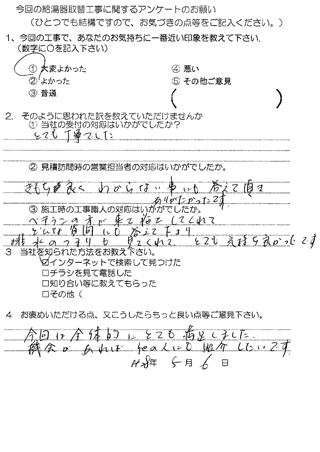 今回の給湯器取替工事に関するアンケートのお願い
(ひとつでも結構ですので、お気づきの点等をご記入ください。)
1、今回の工事で、あなたのお気持ちに一番近い印象を教えて下さい。
(数字に○を記入下さい)
① 大変よかった ④ 悪い
② よかった ⑤ その他ご意見
③ 普通 ( )
2. そのように思われた訳を教えていただけませんか
① 当社の受付の対応はいかがでしたか?
とても丁寧でした
② 見積訪問時の営業担当者の対応はいかがでしたか。
きもち良く わからない事にも 答えて頂き
ありがたかったです
③ 施工時の工事職人の対応はいかがでしたか。
ベテランの方が来て施工してくれて
どんな質問にも答えて下さり
排水のつまりも見てくれて、とても気持ち良かったです
3 当社を知られた方法をお教え下さい。
☑インターネットで検索して見つけた
□チラシを見て電話した
□知り合い等に教えてもらった
□その他(
4 お褒めいただける点、又こうしたらもっと良い点等ご意見下さい。
今回は全体的にとても満足しました。
機会があれば他の人にも紹介したいです
H28年 5月 6日